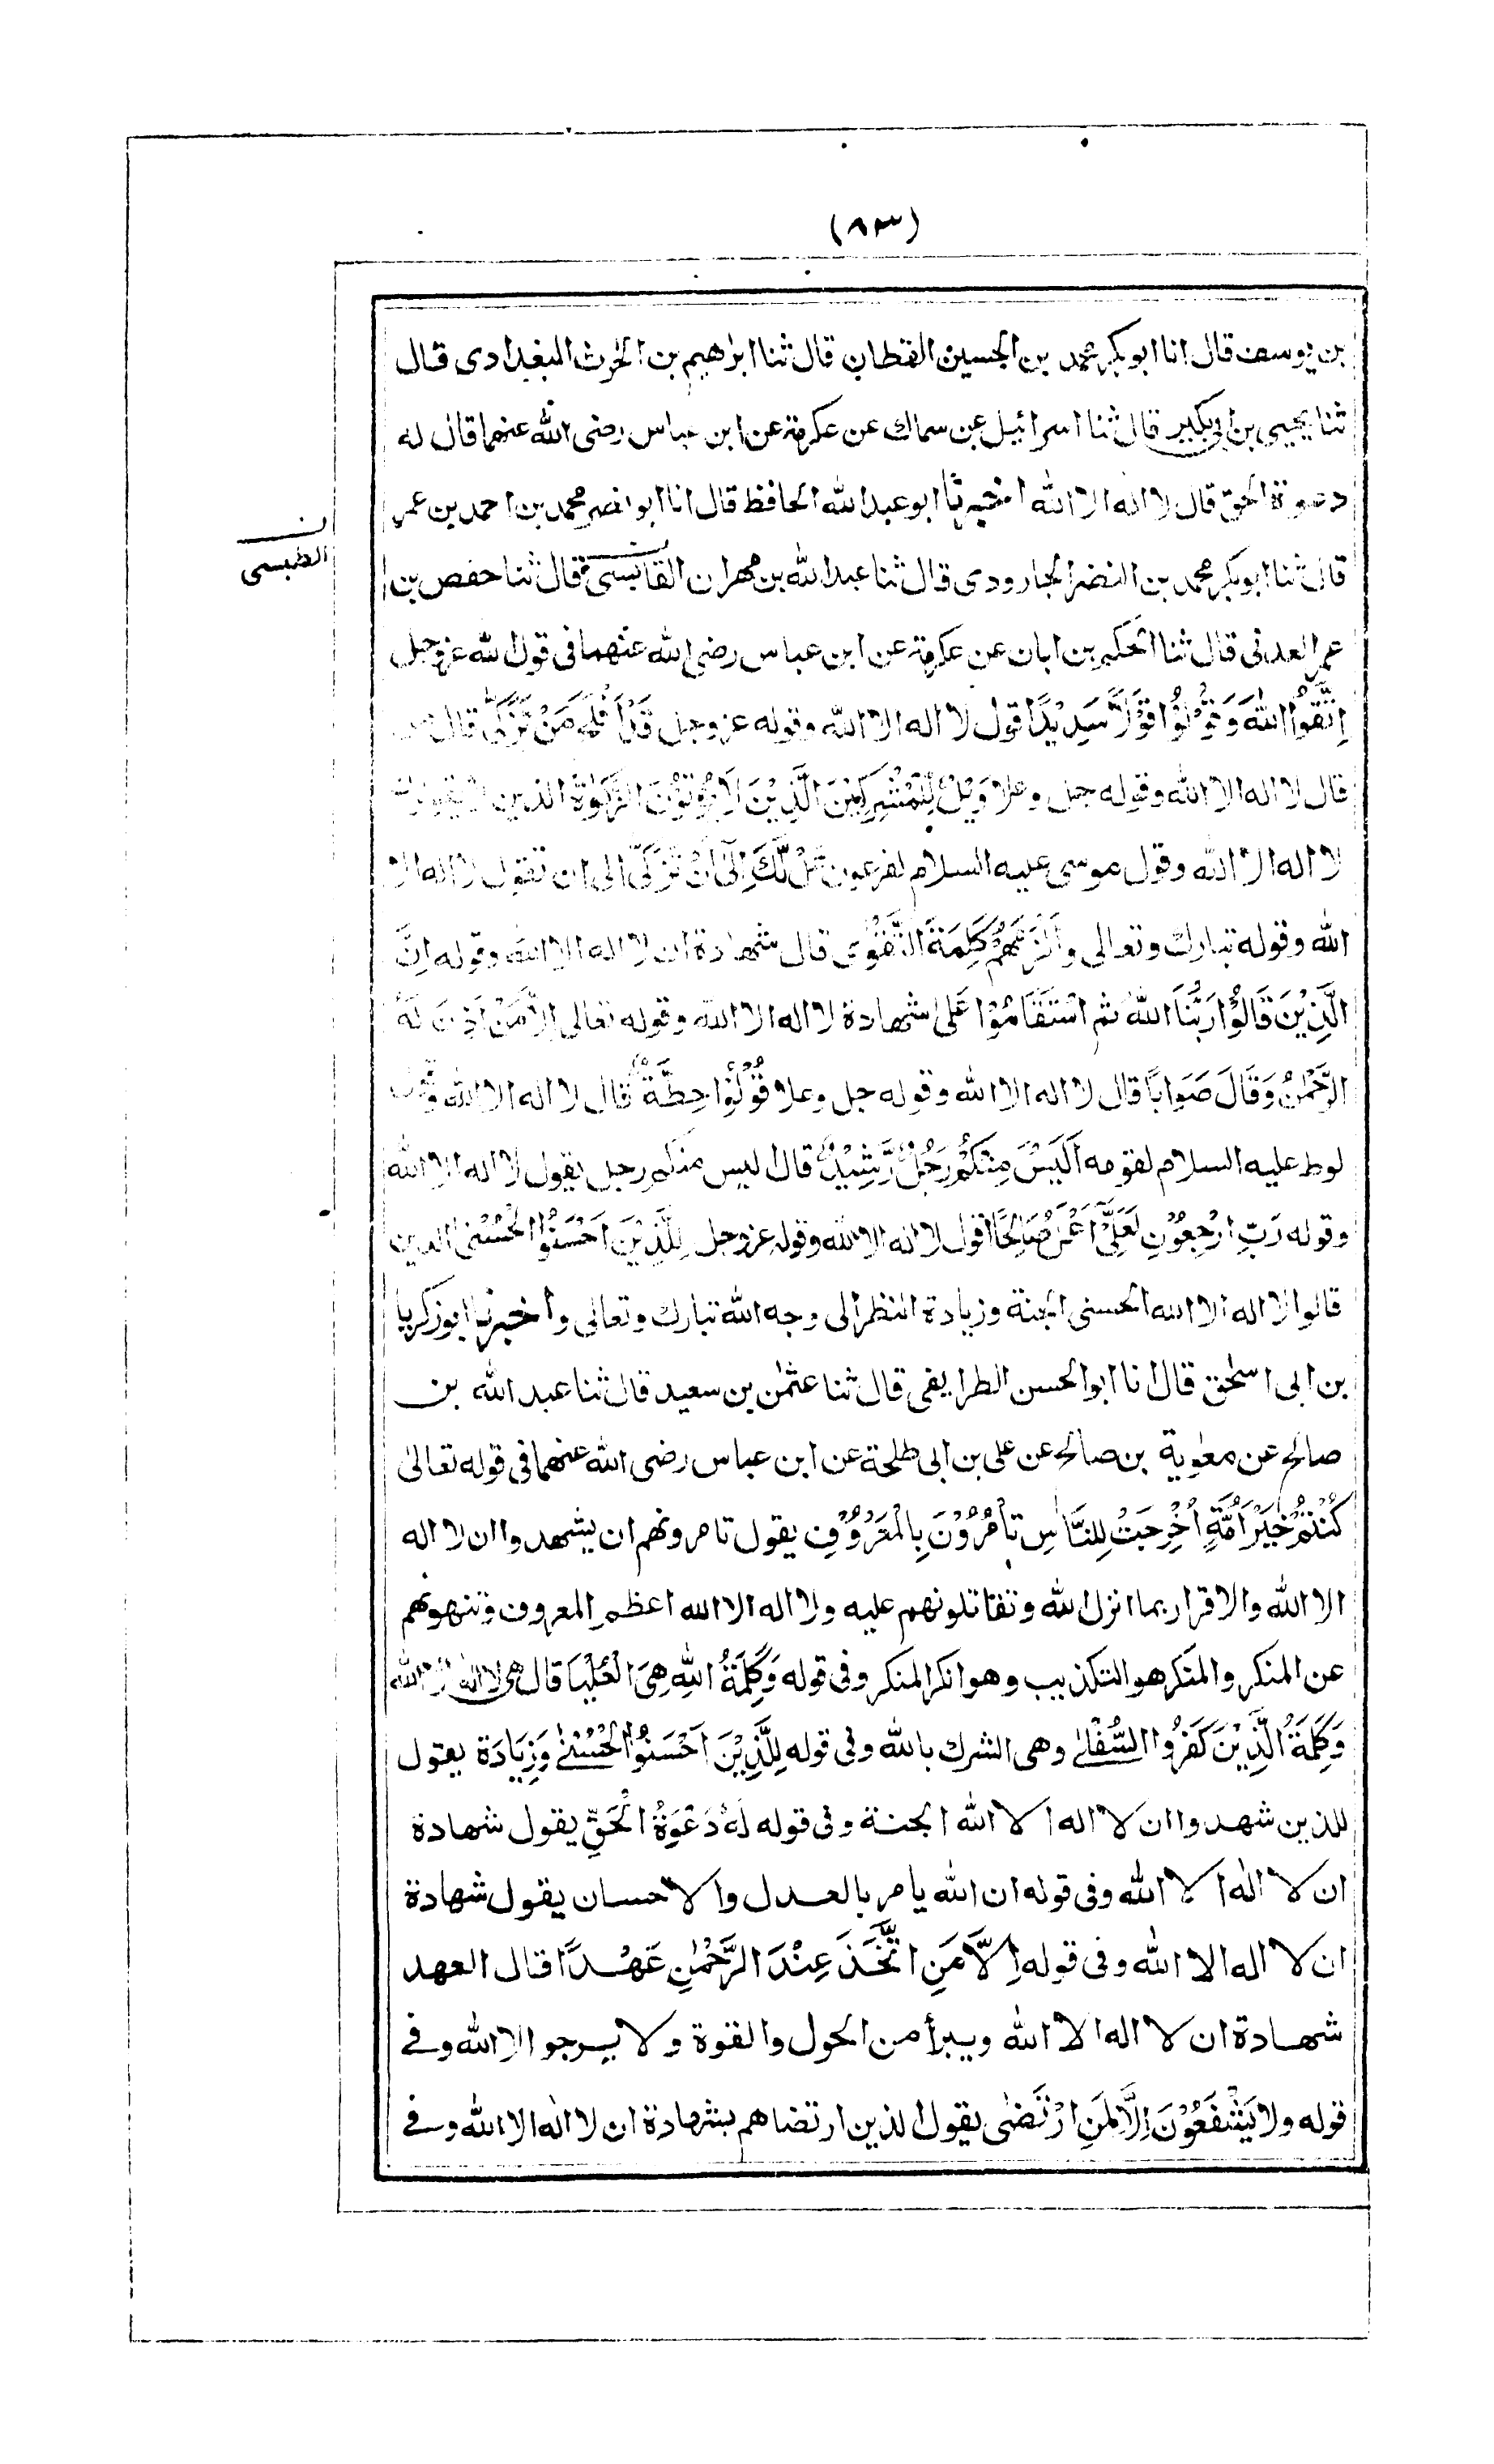 (٨٣)
بن يوسف قال انا ابو بكر محمد بن الحسين القطان قال ثنا ابراهيم بن الحٰرث البغدادى قال
ثنا يحيى بن ابى بكير قال ثنا اسرائيل عن سماك عن عكرمة عن ابن عباس رضى الله عنهما قال له
دعوة الحق قال لا اله الا الله اخبرنا ابو عبد الله الحافظ قال انا ابو نصر محمد بن احمد بن عمر
قال ثنا ابو بكر محمد بن النضر الجارودى قال ثنا عبد الله بن مهران القابسى قال ثنا حفص بن
الطبسى
عمر العدنى قال ثنا الحكم بن ابان عن عكرمة عن ابن عباس رضى الله عنهما فى قول الله عز وجل
اِتَّقُوا اللّٰهَ وَقُوْلُوْا قَوْلًا سَدِيْدًا قول لا اله الا الله وقوله عز وجل قَدْ اَفْلَحَ مَنْ تَزَكّٰى قال
قال لا اله الا الله وقوله جل وعلا وَيْلٌ لِّلْمُشْرِكِيْنَ الَّذِيْنَ لَا يُؤْتُوْنَ الزَّكٰوةَ الذين لا يقولون
لا اله الا الله وقول موسى عليه السلام لفرعون هَلْ لَّكَ اِلٰى اَنْ تَزَكّٰى الى ان تقول لا اله الا
الله وقوله تبارك وتعالى وَاَلْزَمَهُمْ كَلِمَةَ التَّقْوٰى قال شهادة ان لا اله الا الله وقوله اِنَّ
الَّذِيْنَ قَالُوْا رَبُّنَا اللّٰهُ ثم اسْتَقَامُوْا عَلٰى شهادة لا اله الا الله وقوله تعالى اِلَّا مَنْ اَذِنَ لَهُ
الرَّحْمٰنُ وَقَالَ صَوَابًا قال لا اله الا الله وقوله جل وعلا قُوْلُوْا حِطَّةٌ قال لا اله الا الله وقول
لوط عليه السلام لقومه اَلَيْسَ مِنْكُمْ رَجُلٌ رَّشِيْدٌ قال اليس منكم رجل يقول لا اله الا الله
وقوله رَبِّ ارْجِعُوْنِ لَعَلِّىْ اَعْمَلُ صَالِحًا اقول لا اله الا الله وقوله عز وجل لِلَّذِيْنَ اَحْسَنُوا الْحُسْنٰى الذين
قالوا لا اله الا الله الحسنى الجنة وزيادة النظر الى وجه الله تبارك وتعالى واخبرنا ابو زكريا
بن ابى اسحٰق قال انا ابو الحسن الطرايفى قال ثنا عثمٰن بن سعيد قال ثنا عبد الله بن
صالح عن معٰوية بن صالح عن على بن ابى طلحة عن ابن عباس رضى الله عنهما فى قوله تعالىٰ
كُنْتُمْ خَيْرَ اُمَّةٍ اُخْرِجَتْ لِلنَّاسِ تَاْمُرُوْنَ بِالْمَعْرُوْفِ يقول تامرونهم ان يشهدوا ان لا اله
الا الله والاقرار بما انزل الله وتقاتلونهم عليه ولا اله الا الله اعظم المعروف وتنهونهم
عن المنكر والمنكر هو التكذيب وهو انكر المنكر وفى قوله وَكَلِمَةُ اللّٰهِ هِىَ الْعُلْيَا قال هى لا اله الا الله
وَكَلِمَةُ الَّذِيْنَ كَفَرُوا السُّفْلٰى وهى الشرك بالله وفى قوله لِلَّذِيْنَ اَحْسَنُوا الْحُسْنٰى وَزِيَادَة يقول
للذين شهدوا ان لا اله الا الله الجنة وفى قوله لَهٗ دَعْوَةُ الْحَقِّ يقول شهادة
ان لا الٰه الا الله وفى قوله ان الله يامر بالعدل والاحسان يقول شهادة
ان لا اله الا الله وفى قوله اِلَّا مَنِ اتَّخَذَ عِنْدَ الرَّحْمٰنِ عَهْدًا قال العهد
شهادة ان لا اله الا الله ويبرأ من الحول والقوة ولا يرجو الا الله وفى
قوله ولا يَشْفَعُوْنَ اِلَّا لِمَنِ ارْتَضٰى يقول الذين ارتضاهم بشهادة ان لا اله الا الله وفى